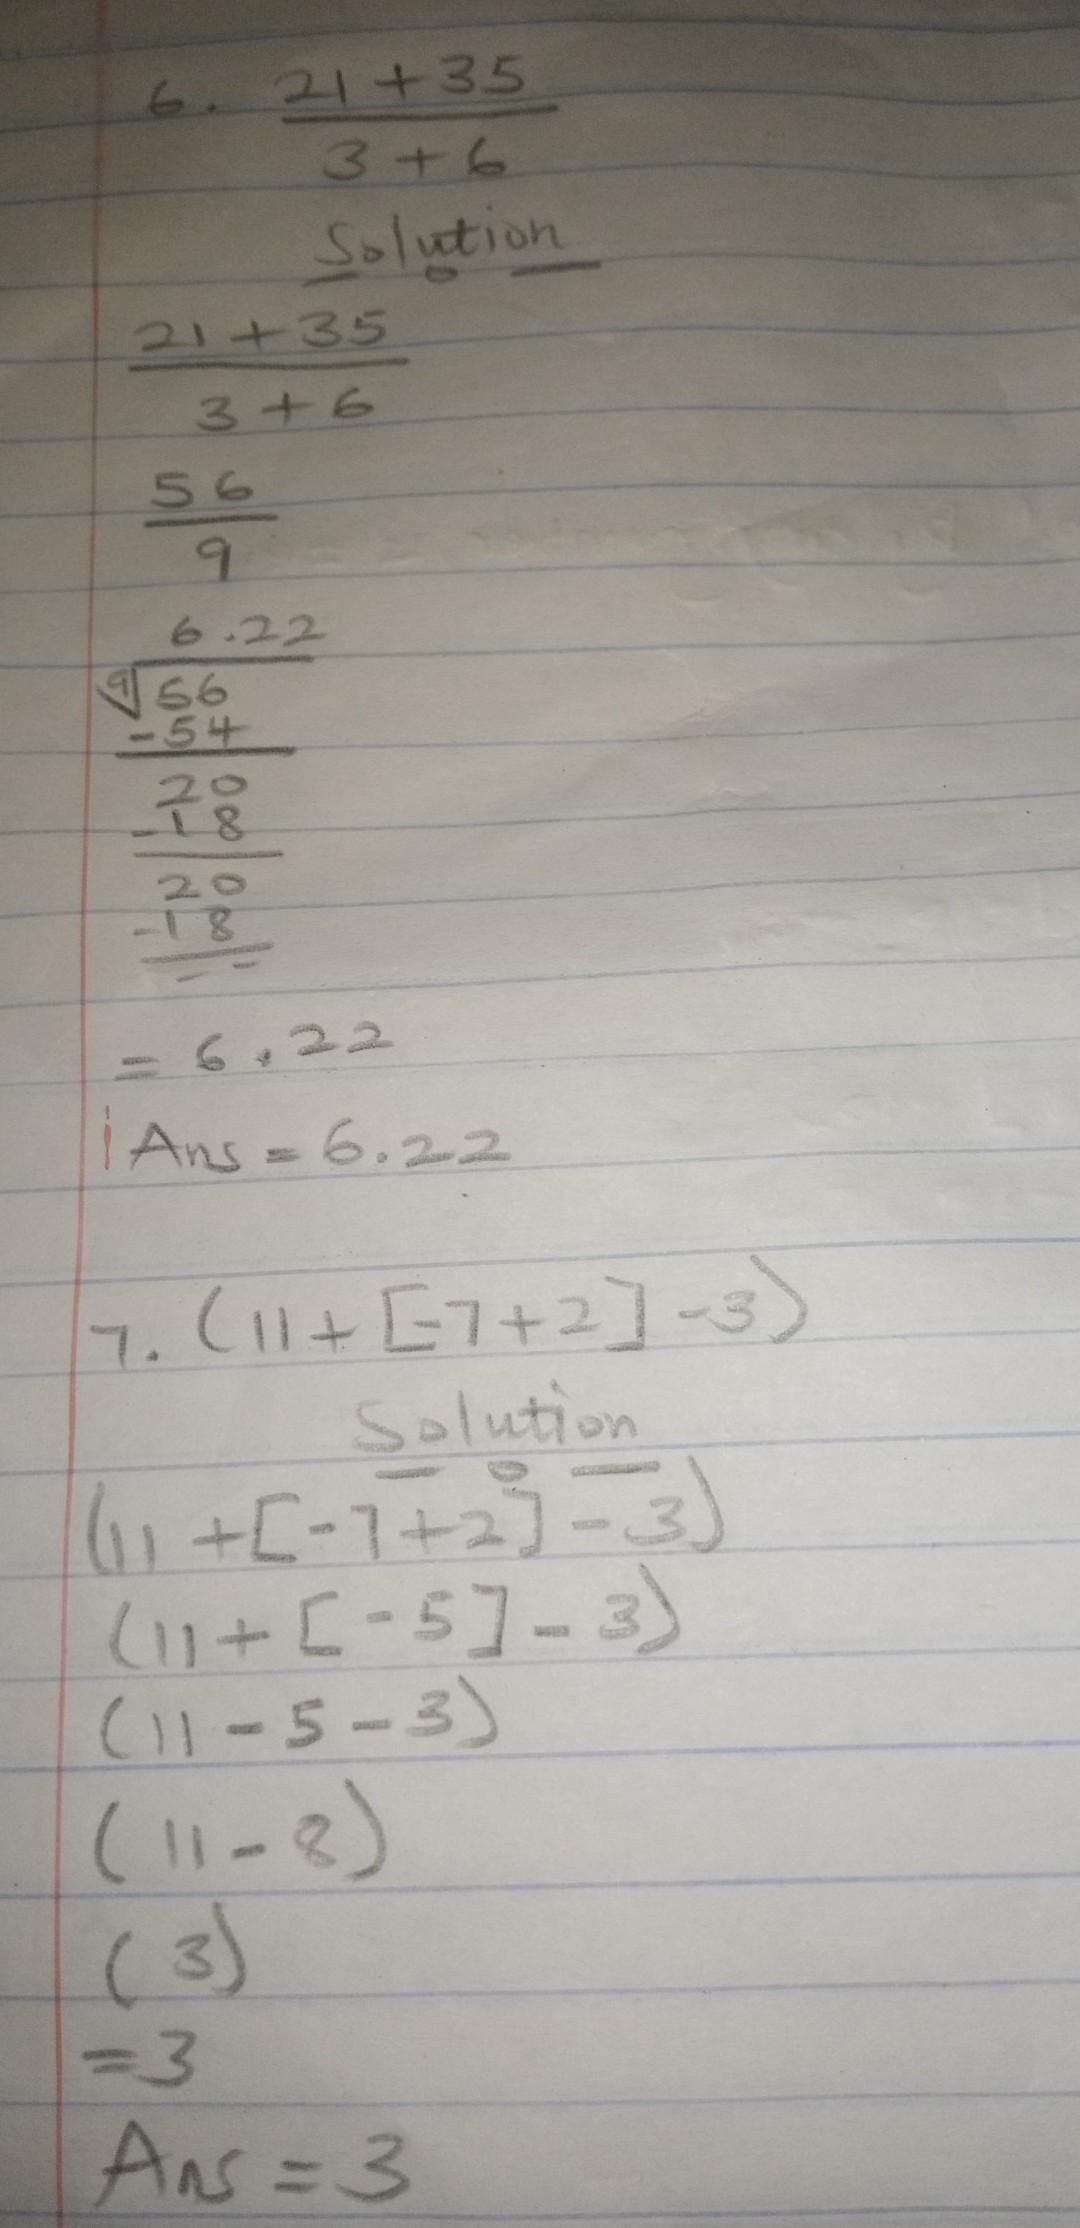 6. 21 + 35
3 + 6
Solution
21 + 35
3 + 6
56
9
6.22
9√56
-54
20
-18
20
-18
--
= 6.22
Ans = 6.22
7. (11 + [-7 + 2] - 3)
Solution
(11 + [-7 + 2] - 3)
(11 + [-5] - 3)
(11 - 5 - 3)
(11 - 8)
(3)
= 3
Ans = 3